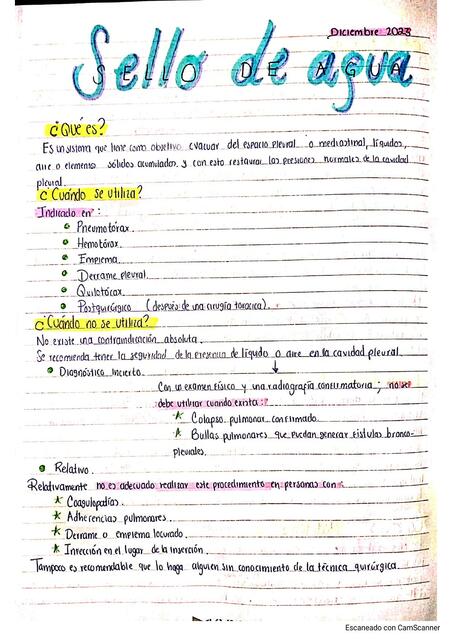 Diciembre 2023
Sello de agua
SELLO DE AGUA
¿Qué es?
Es un sistema que tiene como objetivo evacuar del espacio pleural o mediastinal, líquidos,
aire o elementos sólidos acumulados. y con esto restaurar las presiones normales de la cavidad
pleural.
¿Cuándo se utiliza?
Indicado en:
Pneumotórax.
Hemotórax.
Empiema.
Derrame pleural.
Quilotórax.
Postquirúrgico (después de una cirugía torácica).
¿Cuándo no se utiliza?
No existe una contraindicación absoluta.
Se recomienda tener la seguridad de la presencia de líquido o aire en la cavidad pleural.
Diagnóstico Incierto. ↓
Con un examen físico y una radiografía confirmatoria; no se
debe utilizar cuando exista:
Colapso pulmonar confirmado.
Bullas pulmonares que puedan generar fístulas bronco-
pleurales.
Relativo.
Relativamente no es adecuado realizar este procedimiento en personas con:
Coagulopatías.
Adherencias pulmonares.
Derrame o empiema loculado.
Infección en el lugar de la inserción.
Tampoco es recomendable que lo haga alguien sin conocimiento de la técnica quirúrgica.
Escaneado con CamScanner